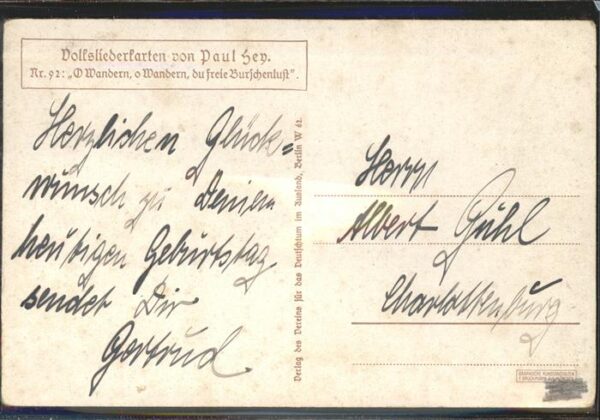 Volksliederkarten von Paul Hey.
Nr. 92: „O Wandern, o Wandern, du freie Burschenlust".
Herzlichen Glück=
wunsch zu Deinem
heutigen Geburtstag
sendet Dir
Gertrud.
Verlag des Vereins für das Deutschtum im Ausland, Berlin W 62.
Herrn
Albert Gühl
Charlottenburg.